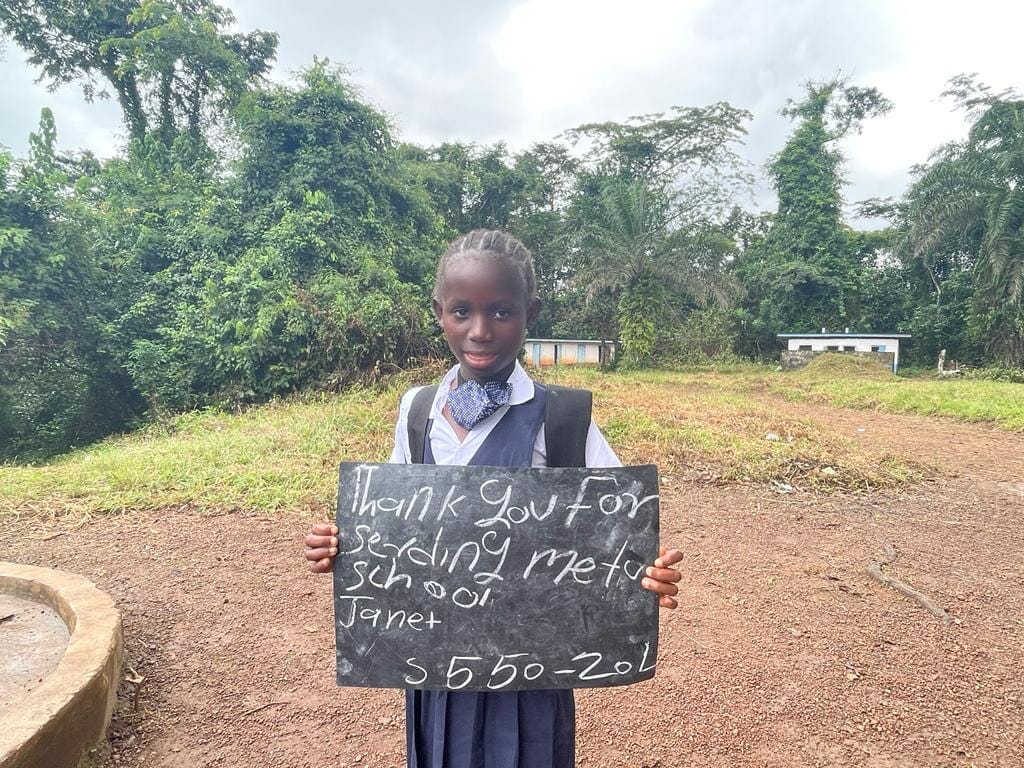 Thank you For
serding me to
school
Janet
S550-20L